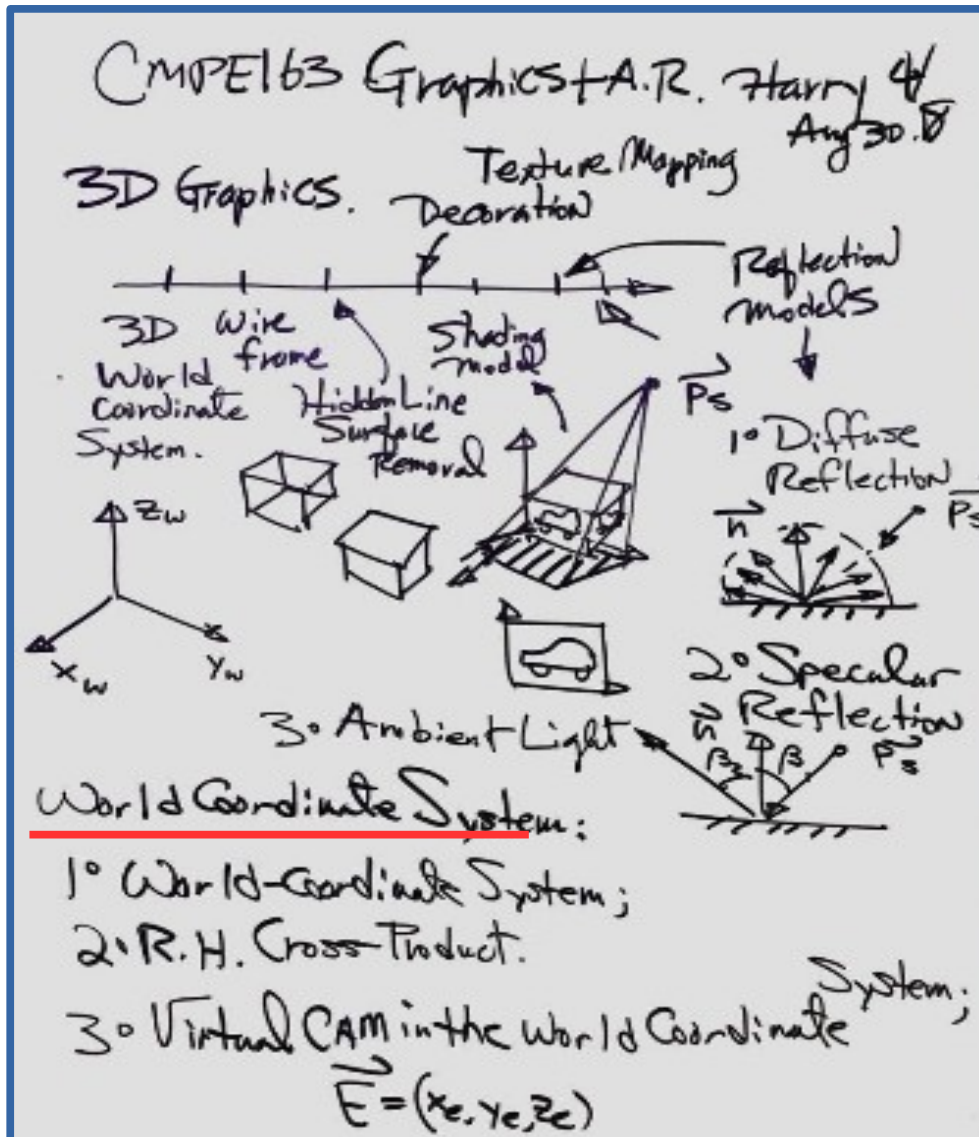 CMPE163 Graphics + A.R. Harry 4/
Aug 30.
3D Graphics.
Texture Mapping
Decoration
Reflection
models
3D
World
Coordinate
System.
Wire
frame
Hidden Line
Surface
Removal
Shading
model
Ps
1° Diffuse
Reflection
n
Ps
Zw
Xw
Yw
2° Specular
Reflection
n
β
Ps
3° Ambient Light
World Coordinate System:
1° World-Coordinate System;
2° R.H. Cross-Product.
3° Virtual CAM in the World Coordinate
System;
E = (xe, ye, ze)